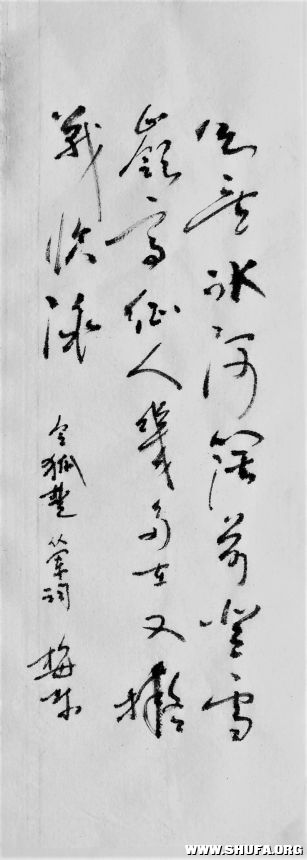 却望冰河闊前登雪
嶺高征人幾多在又擬
戰临洮
令狐楚 从軍詞 梅
WWW.SHUFA.ORG